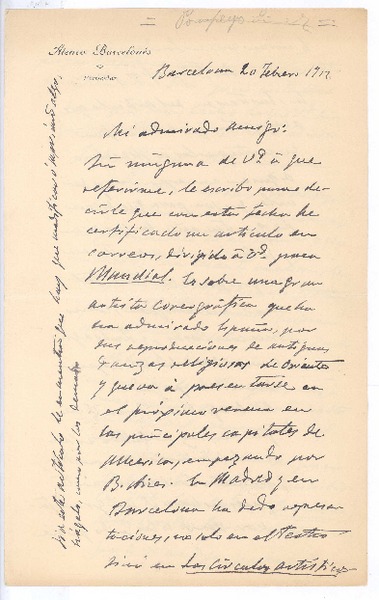 = Pompeyo Gener =
Ateneo Barcelonés
Barcelona 20 Febrero 1912
Mi admirado amigo:
Sin ninguna de Vd. á que
referirme, le escribo para de-
cirle que con esta fecha he
certificado un artículo en
correos, dirigido á Vd. para
Mundial. Es sobre una gran
artista coreográfica que ha
admirado España, por
sus reproducciones de antiguas
danzas religiosas de Oriente
y que va á presentarse en
el próximo verano en
las principales capitales de
America, empezando por
B. Aires. En Madrid y en
Barcelona ha dado represen-
taciones, no solo en el Teatro
sino en los Círculos artísticos
que hay que modificar ó mas
hágalo, como por los demas